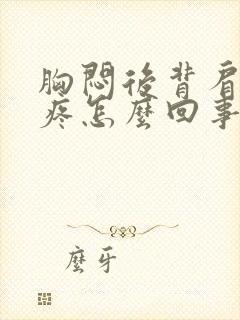 胸悶後背肩
疼怎麼回事
麼牙